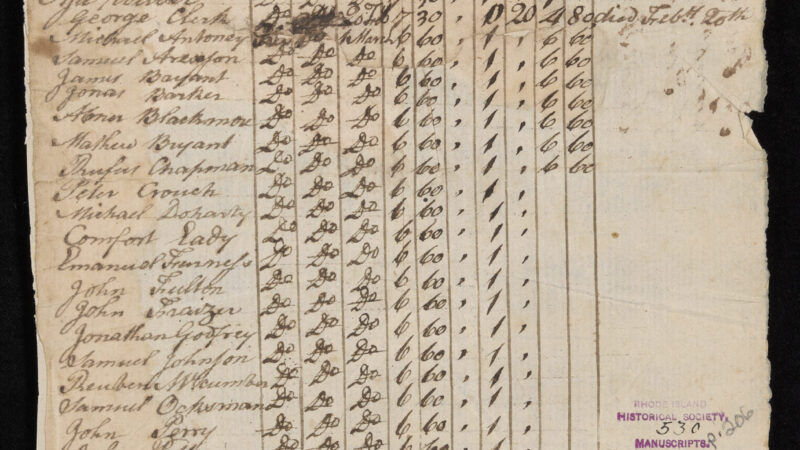 George Clerk Do Do 20th 7 30 , 0 20 4 80 died Feby. 20th
Michael Antoney 1 Mar. 6 60 , 1 , 6 60
Samuel Do Do Do 6 60 , 1 , 6 60
James Bayant Do Do Do 6 60 , 1 , 6 60
Jonas Barker Do Do Do 6 60 , 1 , 6 60
Abner Blackmore Do Do Do 6 60 , 1 , 6 60
Mathew Bryant Do Do Do 6 60 , 1 , 6 60
Rufus Chapman Do Do Do 6 60 , 1 , 6 60
Peter Crouch Do Do Do 6 60 , 1 ,
Michael Doharty Do Do Do 6 60 , 1 ,
Comfort Eady Do Do Do 6 60 , 1 ,
Emanuel Do Do Do 6 60 , 1 ,
John Fulton Do Do Do 6 60 , 1 ,
John Fraizer Do Do Do 6 60 , 1 ,
Jonathan Godfrey Do Do Do 6 60 , 1 ,
Samuel Johnson Do Do Do 6 60 , 1 ,
Reuben Mcumber Do Do Do 6 60 , 1 ,
Samuel Do Do Do 6 60 , 1 ,
John Perry Do Do Do 6 60 , 1 ,
RHODE ISLAND
HISTORICAL SOCIETY
530
MANUSCRIPTS.
p. 206